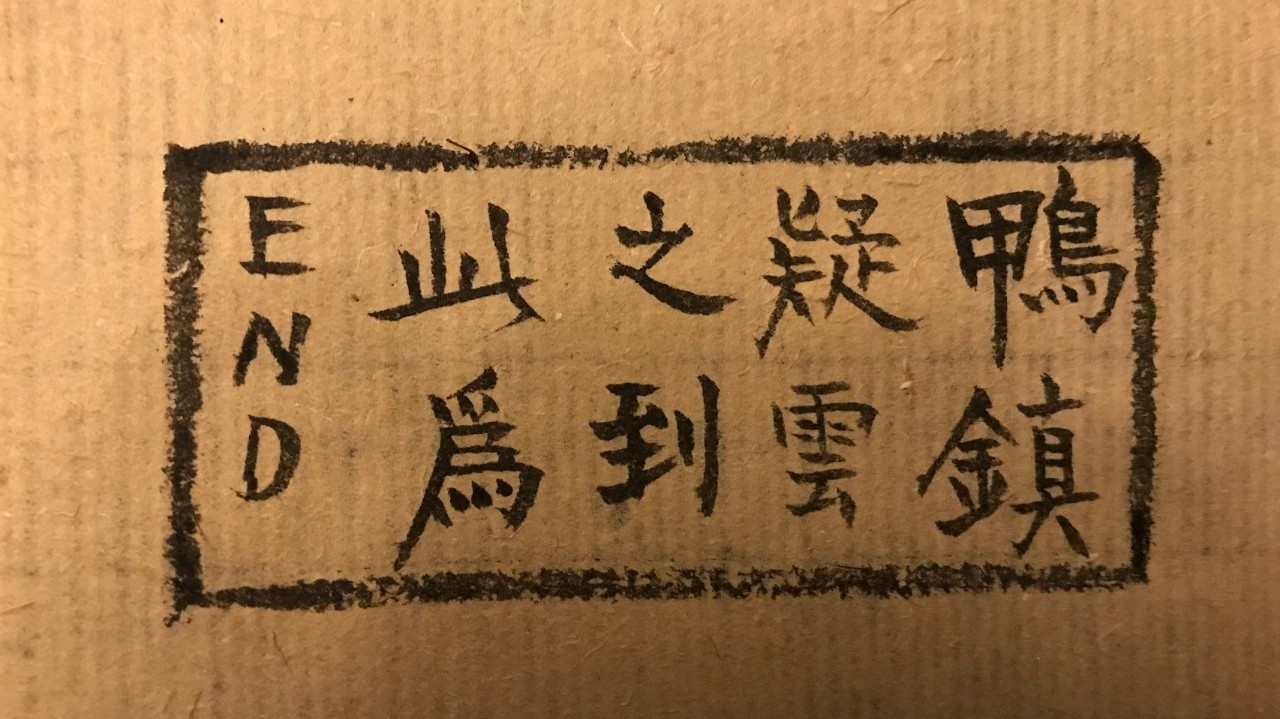 鴨鎮
疑雲
之到
此爲
END